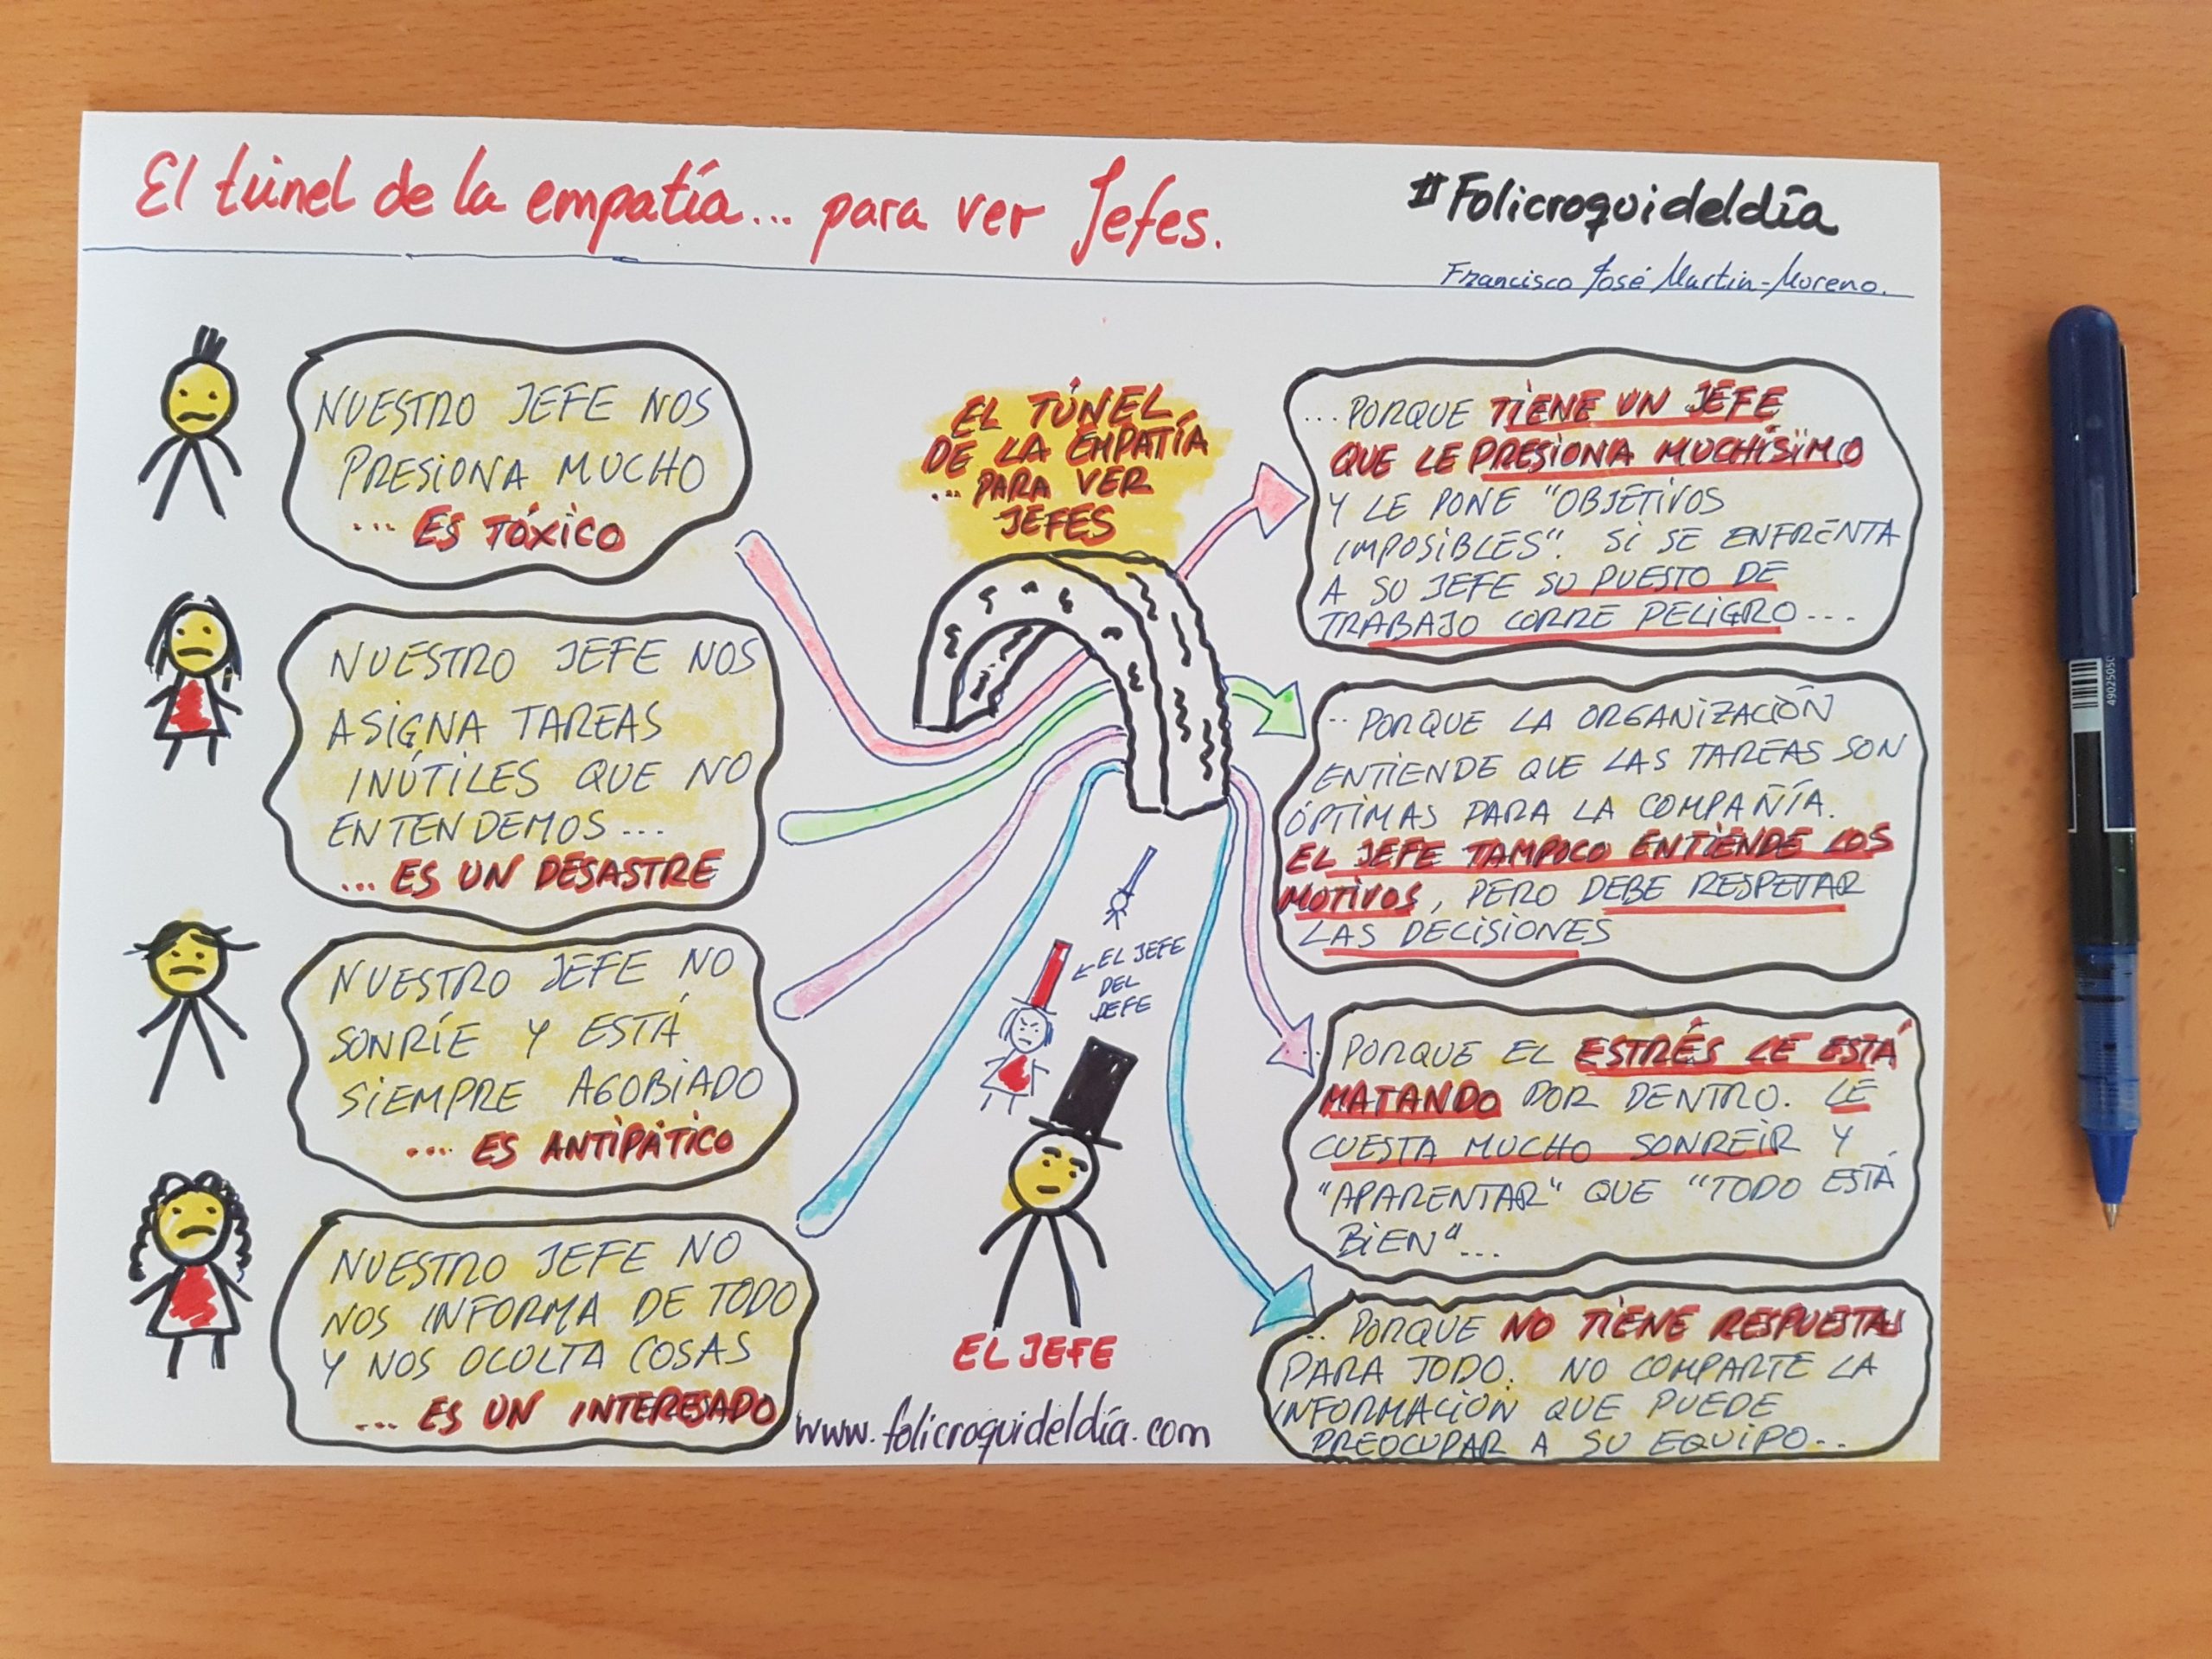 El túnel de la empatía... para ver Jefes.
#Folicroquideldía
Francisco José Martín-Moreno.
NUESTRO JEFE NOS
PRESIONA MUCHO
... ES TÓXICO
NUESTRO JEFE NOS
ASIGNA TAREAS
INÚTILES QUE NO
ENTENDEMOS...
... ES UN DESASTRE
NUESTRO JEFE NO
SONRÍE Y ESTÁ
SIEMPRE AGOBIADO
... ES ANTIPÁTICO
NUESTRO JEFE NO
NOS INFORMA DE TODO
Y NOS OCULTA COSAS
... ES UN INTERESADO
EL TÚNEL
DE LA EMPATÍA
... PARA VER
JEFES
EL JEFE
DEL
JEFE
EL JEFE
www.folicroquideldía.com
...PORQUE TIENE UN JEFE
QUE LE PRESIONA MUCHÍSIMO
Y LE PONE "OBJETIVOS
IMPOSIBLES". SI SE ENFRENTA
A SU JEFE SU PUESTO DE
TRABAJO CORRE PELIGRO...
.. PORQUE LA ORGANIZACIÓN
ENTIENDE QUE LAS TAREAS SON
ÓPTIMAS PARA LA COMPAÑÍA.
EL JEFE TAMPOCO ENTIENDE LOS
MOTIVOS, PERO DEBE RESPETAR
LAS DECISIONES
.. PORQUE EL ESTRÉS LE ESTÁ
MATANDO POR DENTRO. LE
CUESTA MUCHO SONREIR Y
"APARENTAR" QUE "TODO ESTÁ
BIEN"...
.. PORQUE NO TIENE RESPUESTAS
PARA TODO. NO COMPARTE LA
INFORMACIÓN QUE PUEDE
PREOCUPAR A SU EQUIPO..